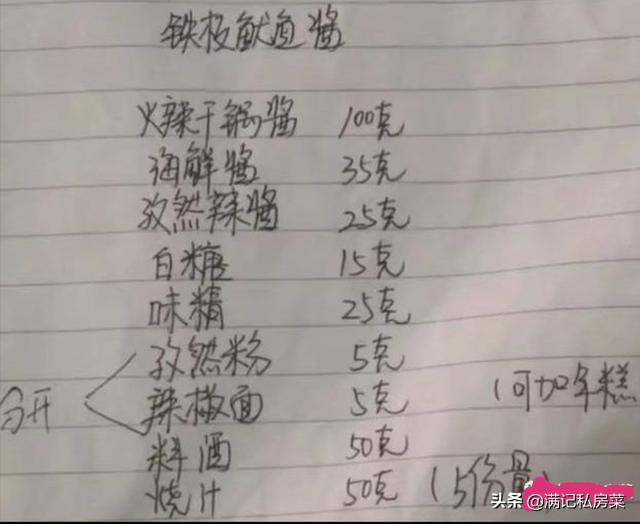 铁板鱿鱼酱
火辣干锅酱 100克
海鲜酱 35克
孜然辣酱 25克
白糖 15克
味精 25克
孜然粉 5克
分开 辣椒面 5克 (可加年糕
料酒 50克
烧汁 50克 (5份量)
头条 @满记私房菜